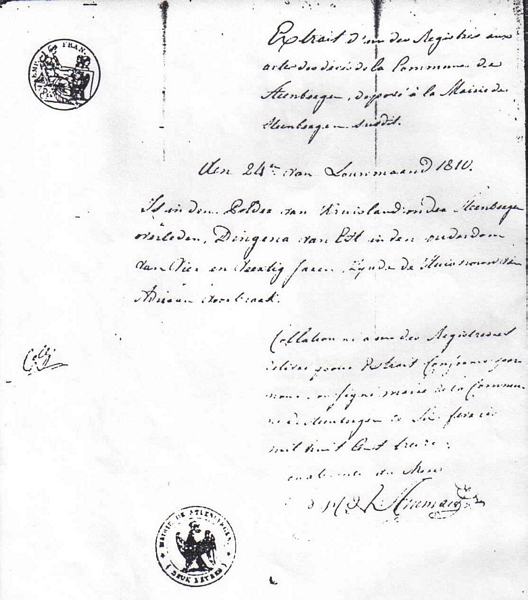 Extrait d'un des Registres aux
actes des décès de la Commune de
Steenbergen, déposé à la Mairie de
Steenbergen susdit.
Den 24en van Louwmaand 1810.
Is in den Polder van Kruisland onder Steenbergen
overleden, Dingena van Est in den ouderdom
van Vier en Veertig Jaren, Zynde de Huisvrouw van
Adriaan
Collationné a un des Registres et
délivré pour Extrait Conforme par
nous soussigné maire de la Commune
de Steenbergen le Six fevrier
mil huit Cent treize
MAIRIE DE STEENBERGEN